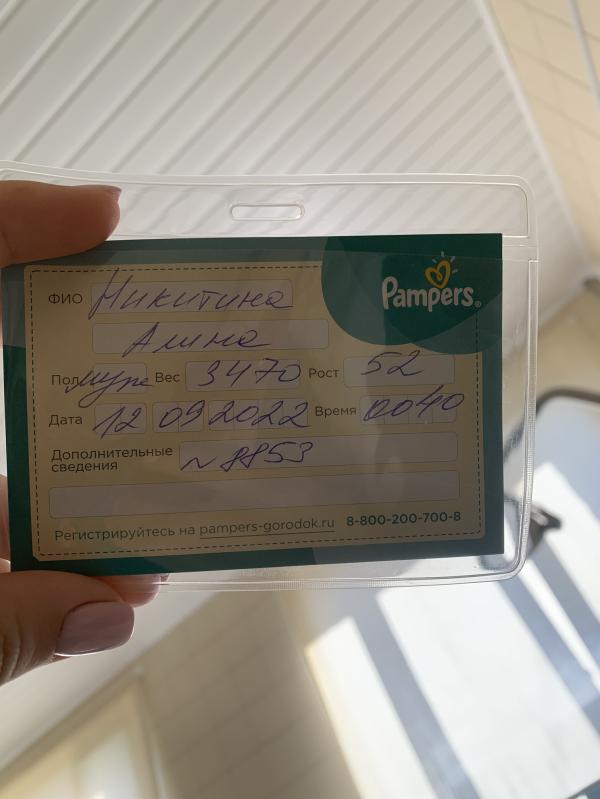 Pampers®
ФИО Никитина
Алина
Пол муж Вес 3470 Рост 52
Дата 12 09 2022 Время 0040
Дополнительные сведения ~ 8853
Регистрируйтесь на pampers-gorodok.ru 8-800-200-700-8